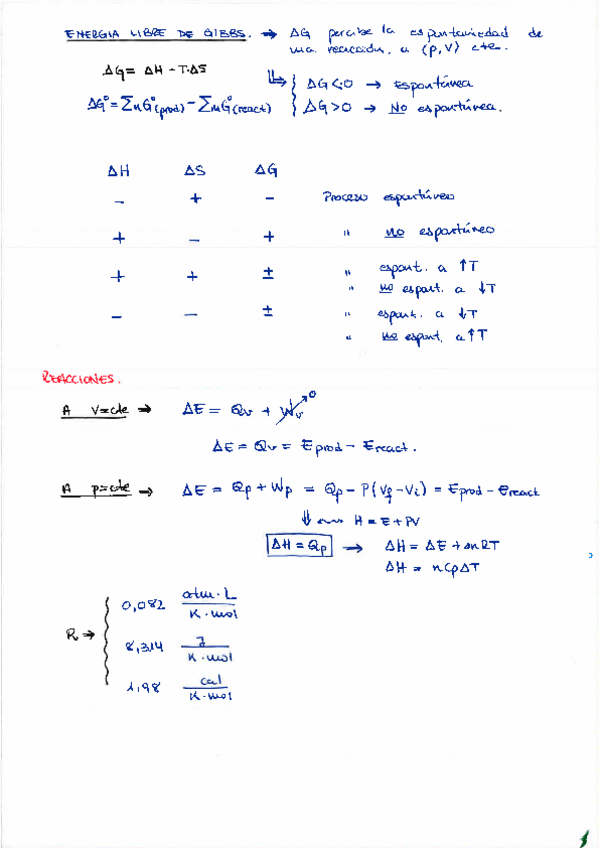 ENERGIA LIBRE DE GIBBS. → ΔG percibe la espontaneidad de
una reacción, a (p,V) cte.
ΔG = ΔH - T·ΔS
ΔG<0 → Espontánea
ΔG° = ΣnG°(prod) - ΣnG°(react)
ΔG>0 → No espontánea.
ΔH ΔS ΔG
- + - Proceso espontáneo
+ - + " no espontáneo
+ + ± " espont. a ↑T
" no espont. a ↓T
- - ± " espont. a ↓T
" no espont. a ↑T
REACCIONES.
A V=cte → ΔE = Qv + Wv 0
ΔE = Qv = Eprod - Ereact.
A p=cte → ΔE = Qp + Wp = Qp - P(Vf - Vi) = Eprod - Ereact
⇓ H = E + PV
ΔH = Qp → ΔH = ΔE + ΔnRT
ΔH = nCpΔT
R → 0,082 atm·L / K·mol
8,314 J / K·mol
1,98 cal / K·mol